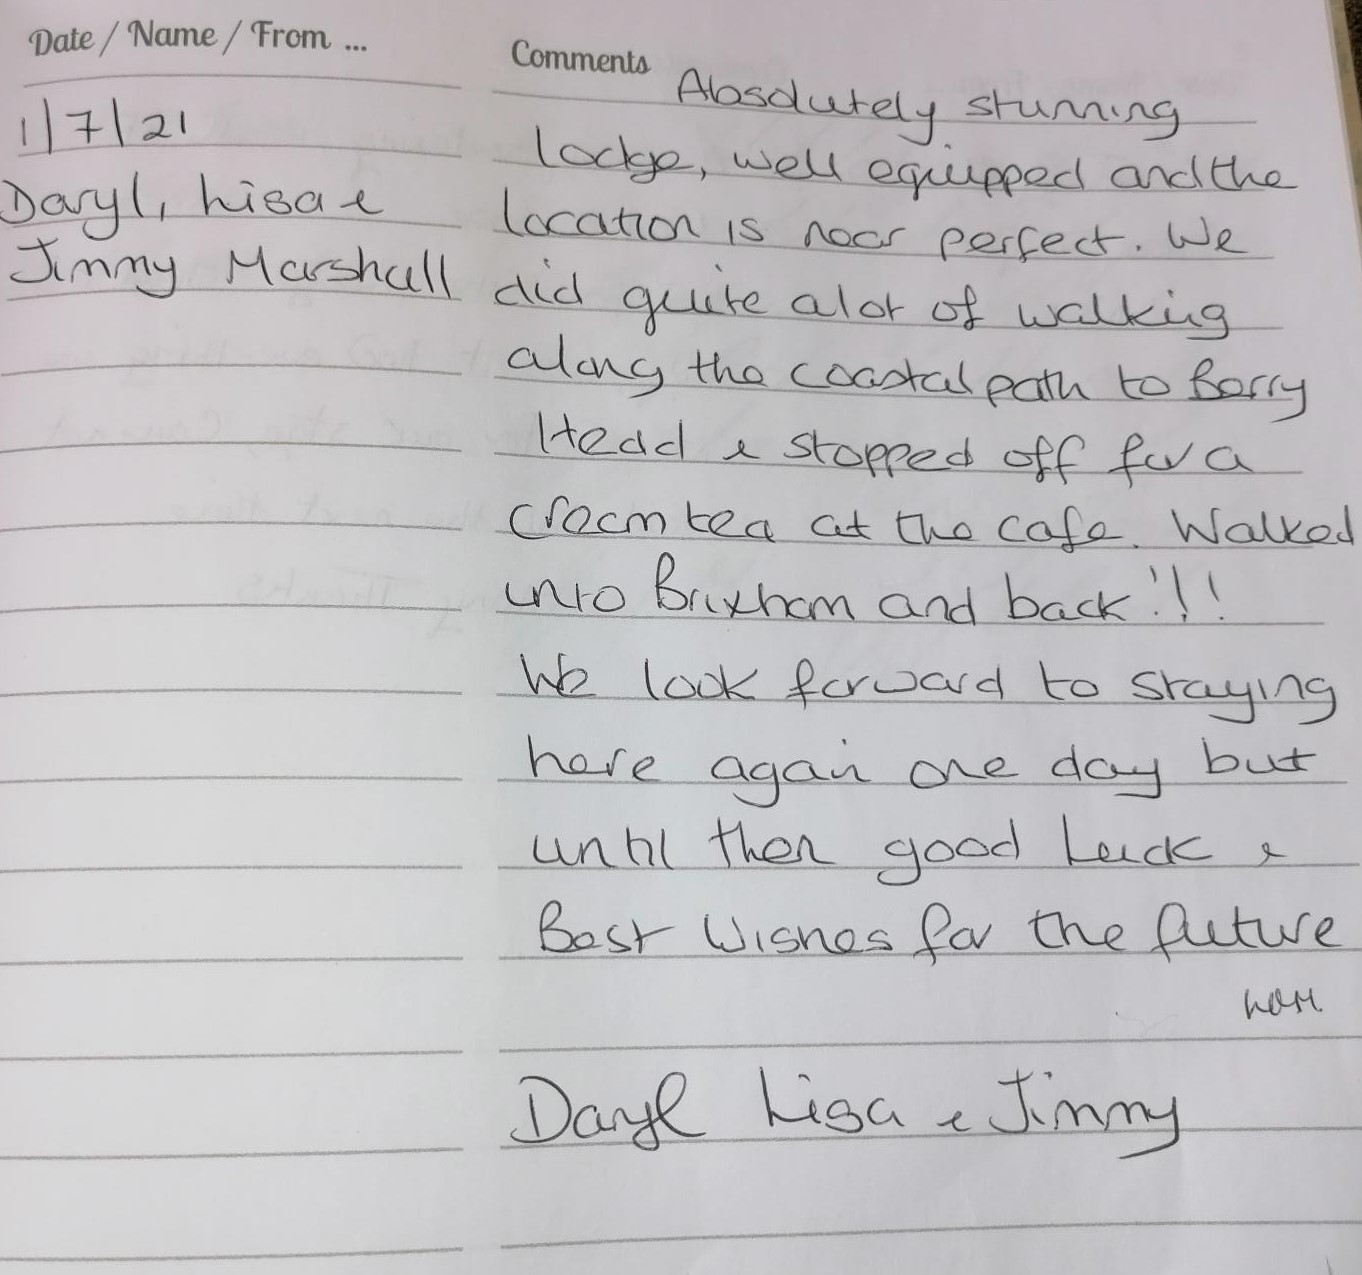 Date / Name / From ...
Comments
1/7/21
Daryl, Lisa &
Jimmy Marshall
Absolutely stunning
lodge, well equipped and the
location is near perfect. We
did quite alot of walking
along the coastal path to Berry
Head & stopped off for a
cream tea at the cafe. Walked
into Brixham and back!!!
We look forward to staying
here again one day but
until then good luck &
Best Wishes for the future
Daryl Lisa & Jimmy